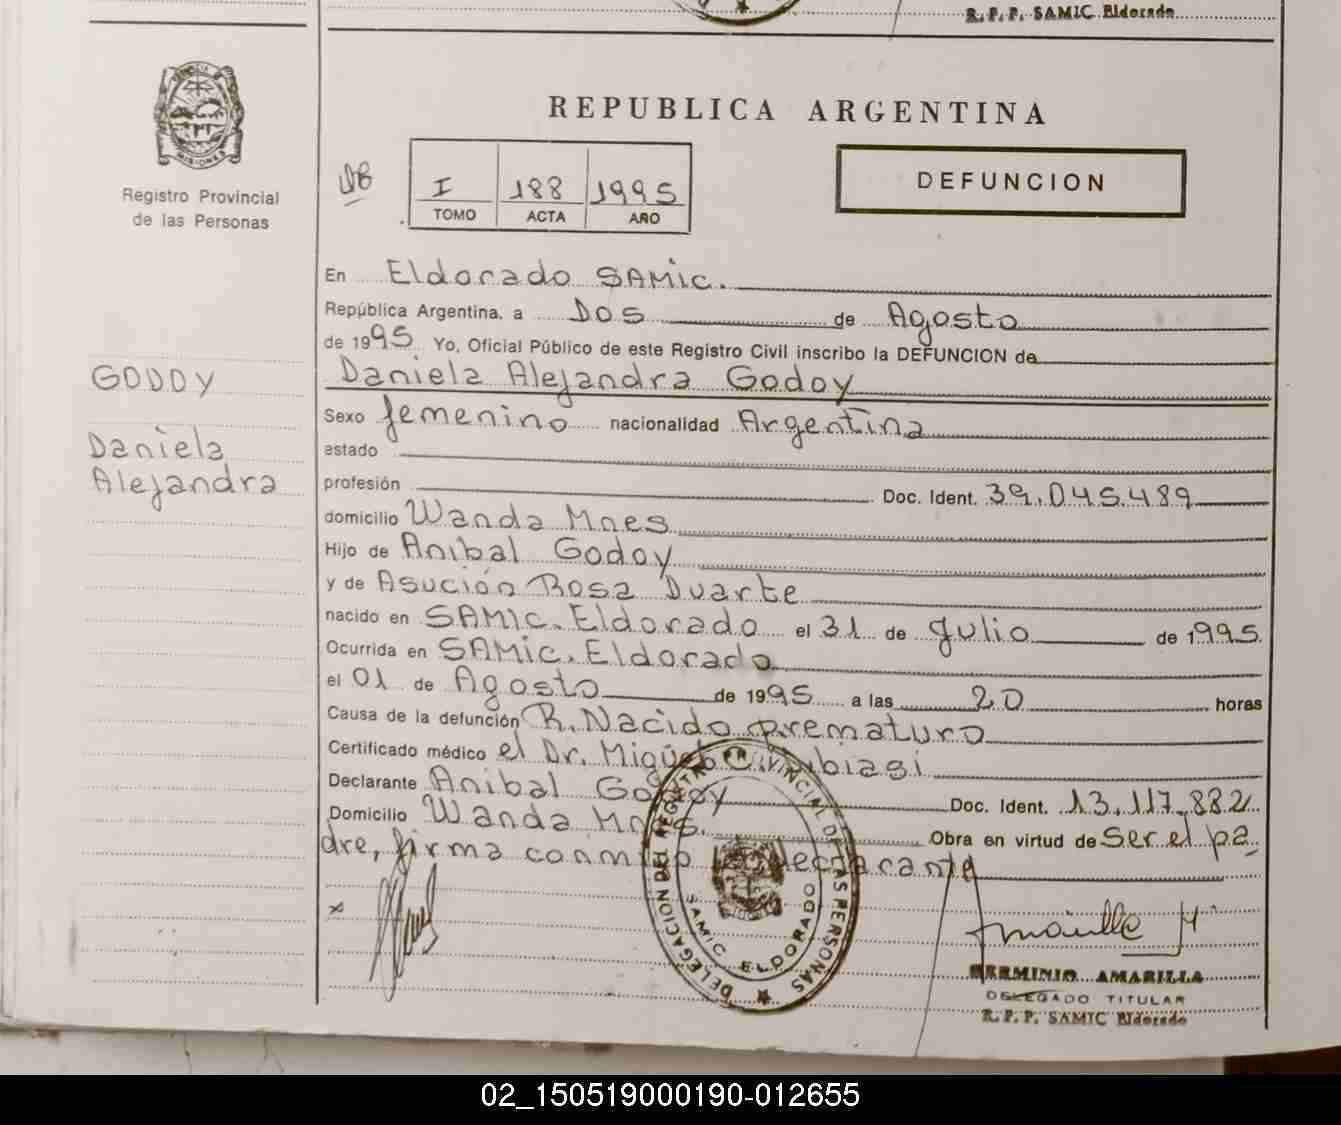 R. P. P. SAMIC Eldorado
REPUBLICA ARGENTINA
MISIONES
Registro Provincial
de las Personas
I 188 1995
TOMO ACTA AÑO
DEFUNCION
En Eldorado SAMic.
República Argentina, a Dos de Agosto
de 1995 Yo, Oficial Público de este Registro Civil inscribo la DEFUNCION de
GODOY
Daniela Alejandra Godoy
Sexo femenino nacionalidad Argentina
Daniela
estado
Alejandra
profesión Doc. Ident. 39.045.489
domicilio Wanda Mnes
Hijo de Anibal Godoy
y de Asución Rosa Duarte
nacido en SAMic. Eldorado el 31 de Julio de 1995
Ocurrida en SAMic. Eldorado
el 01 de Agosto de 1995 a las 20 horas
Causa de la defunción R. Nacido prematuro
Certificado médico el Dr. Miguel
Declarante Anibal Godoy Doc. Ident. 13.117.882
Domicilio Wanda Mnes. Obra en virtud de Ser el pa
dre, firma conmigo declarante
DELEGACION DEL REGISTRO PROVINCIAL DE LAS PERSONAS
SAMIC ELDORADO
Amarilla H
HERMINIO AMARILLA
DELEGADO TITULAR
R. P. P. SAMIC Eldorado
02_150519000190-012655